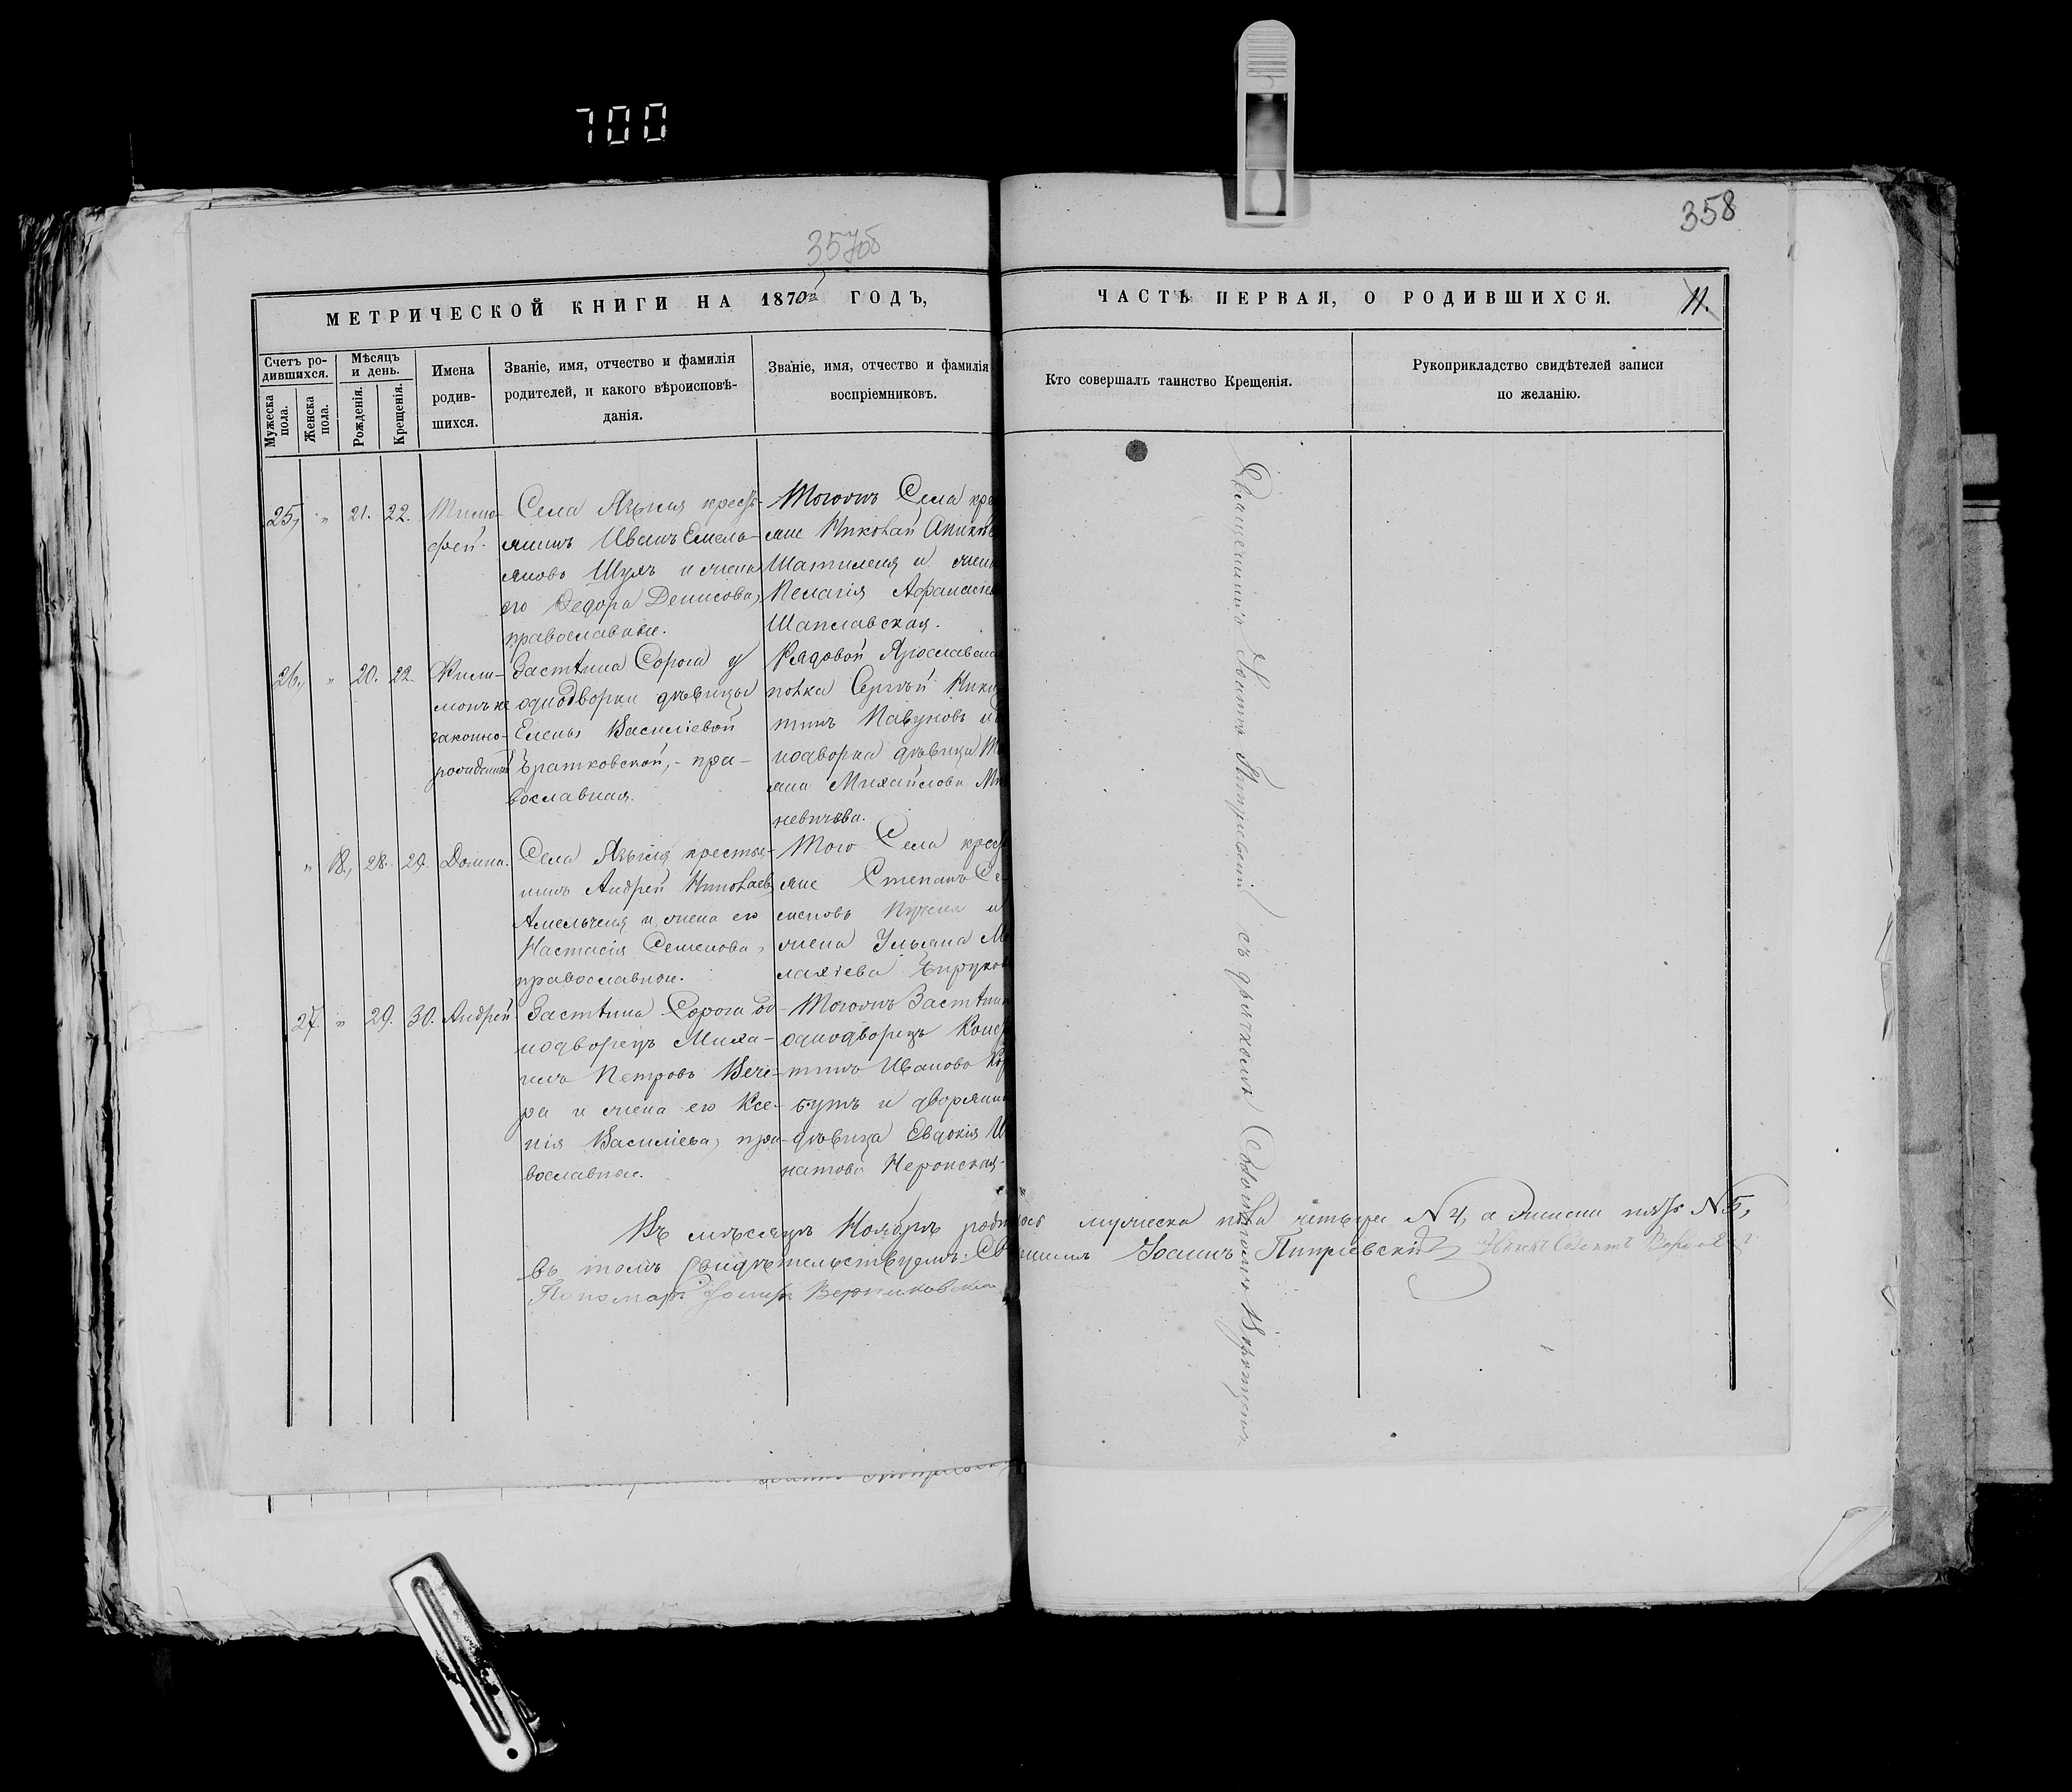 700
357об
358
МЕТРИЧЕСКОЙ КНИГИ НА 1870й ГОДЪ,
ЧАСТЬ ПЕРВАЯ, О РОДИВШИХСЯ.
11.
Счетъ ро-
дившихся.
Мужеска
пола.
Женска
пола.
Мѣсяцъ
и день.
Рожденія.
Крещенія.
Имена
родив-
шихся.
Званіе, имя, отчество и фамилія
родителей, и какого вѣроисповѣ-
данія.
Званіе, имя, отчество и фамилія
воспріемниковъ.
Кто совершалъ таинство Крещенія.
Рукоприкладство свидѣтелей записи
по желанію.
25, " 21. 22.
Тимо-
фей.
Села Языля кресть-
янинъ Иванъ Емель-
яновъ Шуляъ и жена
его Ѳедора Денисова,
православные.
Тогожъ Села кре
яне Николай
Шатиленя и жен
Пелагія Афанасіе
Шаплавская.
26, " 20. 22.
Фили-
монъ не
законно-
рожденный
Застѣнка Сорога
однодворки дѣвицы
Елены Василіевой
Братковской, - пра-
вославная.
Рядовой Ярославска
полка Сергѣй Ники
тинъ Павуновъ и
нодворка дѣвица
яна Михайлова
невичева.
" 18, 28. 29. Домна.
Села Языля крестья-
нинъ Андрей Николаев
Амельченя и жена его
Настасія Семенова,
православные.
Того Села крест
яне Степанъ Се-
меновъ Пученя и
жена Ульяна Ме
лахіева
27. " 29. 30. Андрей
Застѣнка Сорога од-
нодворецъ Миха-
илъ Петровъ Вече-
ра и жена его Ксе-
нія Василіева, пра-
вославные.
Тогожъ Застѣнка
однодворецъ Конс
тинъ Ивановъ Ко
бутъ и дворянка
дѣвица Евдокія И
натова Неронская.
Священникъ Іоаннъ Пигулевскій съ дьячкомъ
Въ мѣсяцѣ Ноябрѣ родилось мужеска пола четыре N 4, а женска пять N 5,
въ томъ свидѣтельствуемъ: Священникъ Іоаннъ Пигулевскій
Пономарь Іосифъ Верниковскій